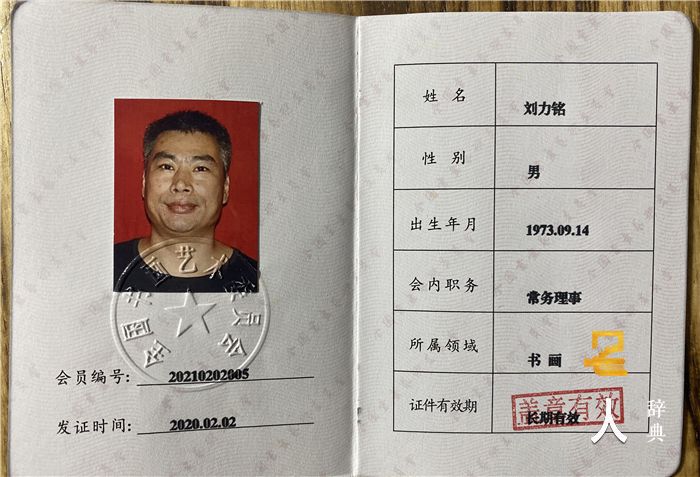 会员编号: 20210202005
发证时间: 2020.02.02
姓名 刘力铭
性别 男
出生年月 1973.09.14
会内职务 常务理事
所属领域 书画
证件有效期 长期有效
盖章有效
人 辞典